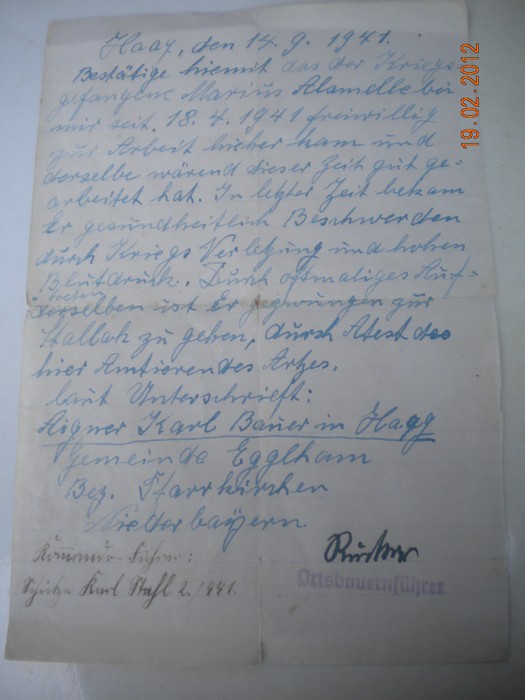 Haag, den 14. 9. 1941.
Bestätige hiemit das der Kriegs-
gefangene Marius Alamelle bei
mir seit. 18. 4. 1941 freiwillig
zur Arbeit hieher kam und
derselbe wärend dieser Zeit gut ge-
arbeitet hat. In letzter Zeit bekam
Er gesundheitlich Beschwerden
durch Kriegs Verletzung und hohen
Blutdruck. Durch oftmaliges Auf-
treten
derselben ist Er gezwungen zur
Stallak zu gehen, durch Atest des
hier Amtierendes Artzes.
laut Unterschrieft:
Aigner Karl Bauer in Hagg
Gemeinde Egglham
Bez. Pfarrkirchen
Niederbayern
Komando-Führer:
Schütze Karl Stahl 2./441.
Ortsbauernführer
19.02.2012